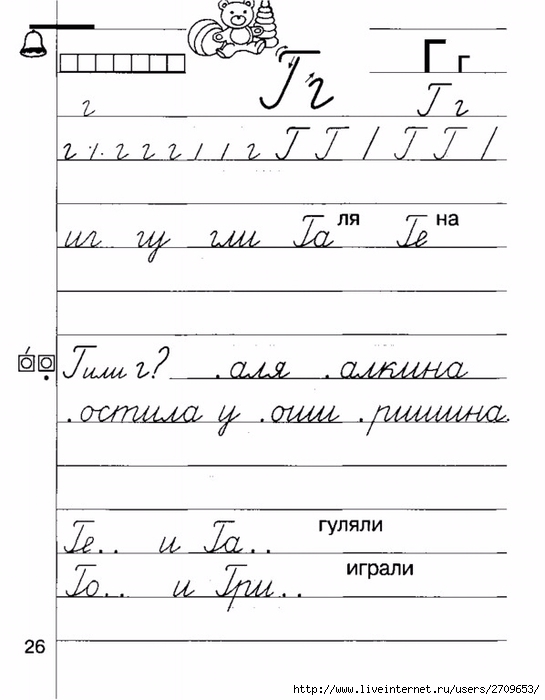 Г г Г г
г Г г
г г г г г Г Г Г Г
иг гу гли Га ля Ге на
Г или г? .аля .алкина
.остила у .оши .ришина.
Ге.. и Га.. гуляли
Го.. и Гри.. играли
26
http://www.liveinternet.ru/users/2709653/